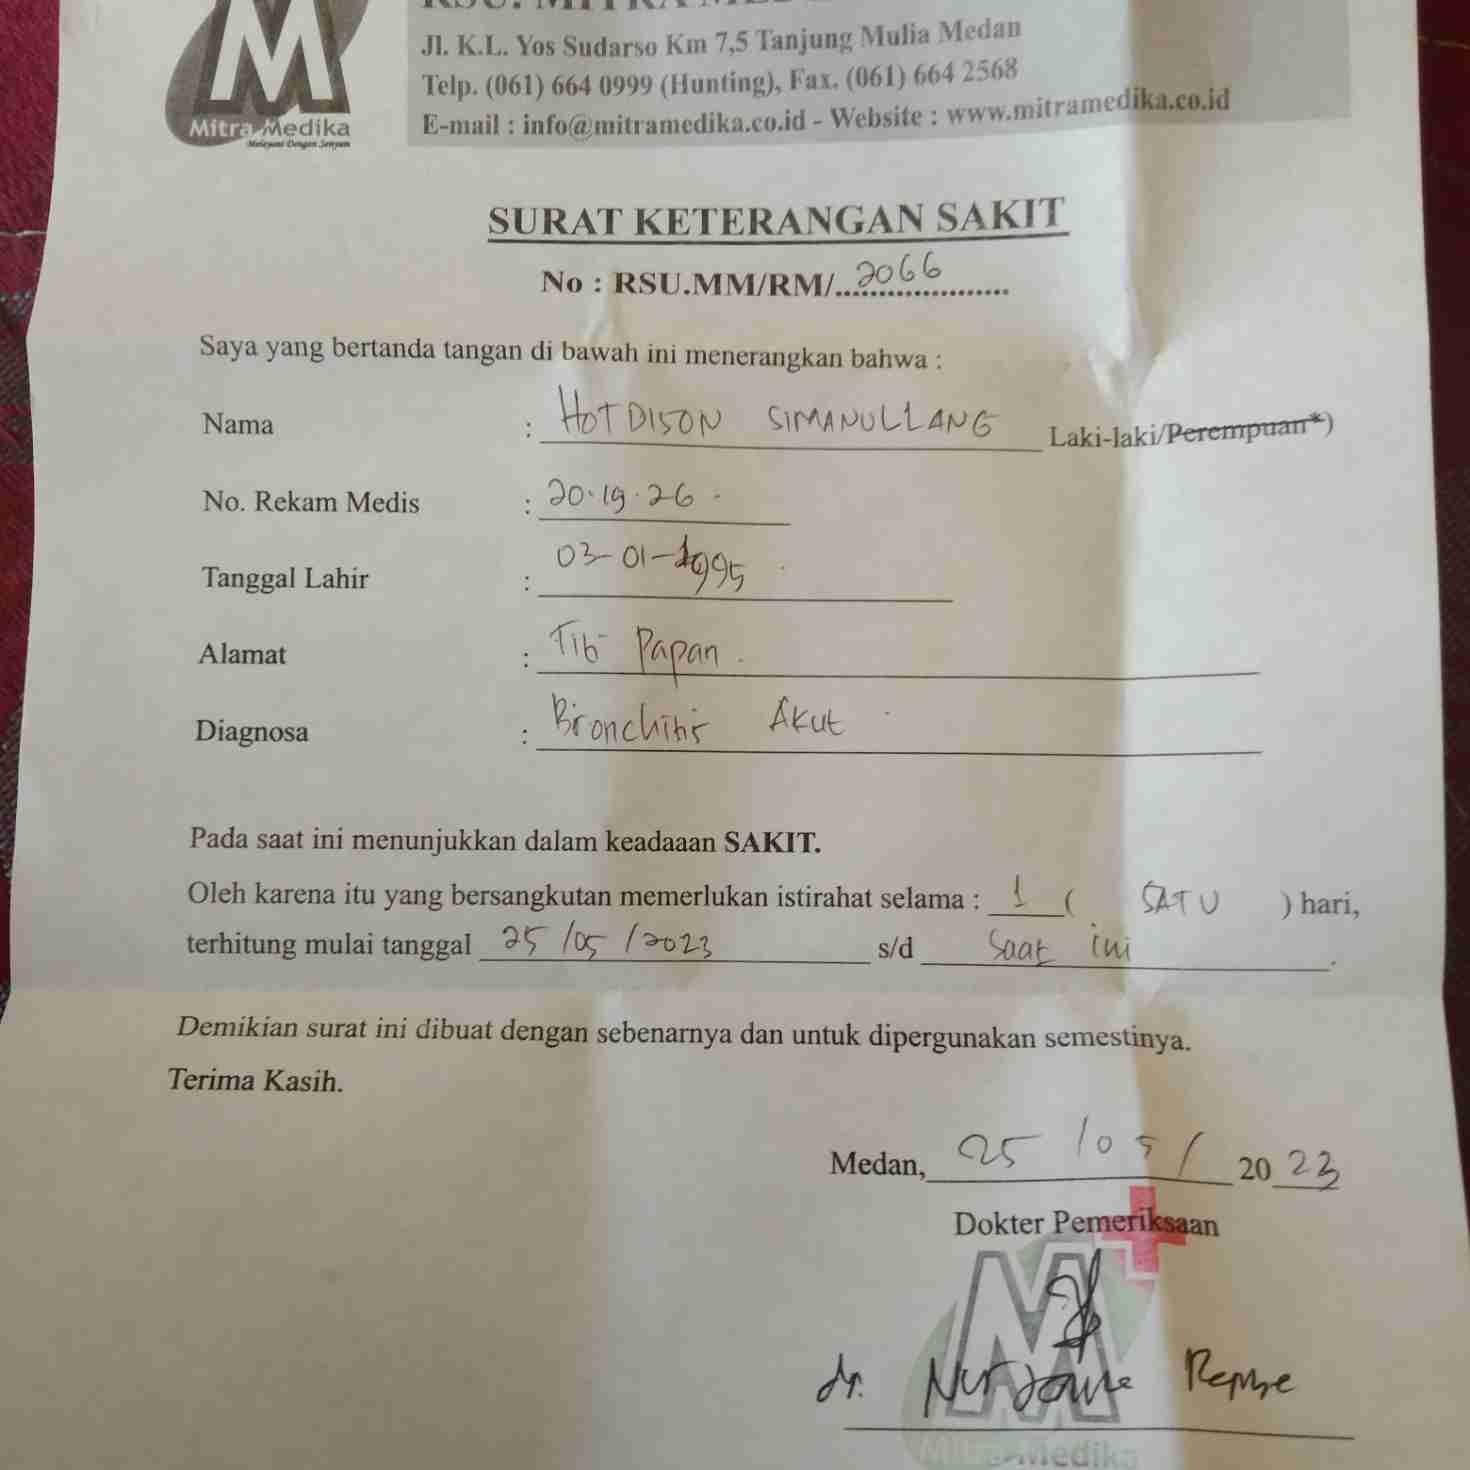 RSU. MITRA MEDIKA
Jl. K.L. Yos Sudarso Km 7,5 Tanjung Mulia Medan
Telp. (061) 664 0999 (Hunting), Fax. (061) 664 2568
E-mail : info@mitramedika.co.id - Website : www.mitramedika.co.id
M
Mitra Medika
Melayani Dengan Senyum
SURAT KETERANGAN SAKIT
No : RSU.MM/RM/...2066...
Saya yang bertanda tangan di bawah ini menerangkan bahwa :
Nama : HOTDISON SIMANULLANG Laki-laki/Perempuan*)
No. Rekam Medis : 20.19.26.
Tanggal Lahir : 03-01-1995
Alamat : Papan.
Diagnosa : Bronchitis Akut
Pada saat ini menunjukkan dalam keadaaan SAKIT.
Oleh karena itu yang bersangkutan memerlukan istirahat selama : 1 ( SATU ) hari,
terhitung mulai tanggal 25/05/2023 s/d saat ini.
Demikian surat ini dibuat dengan sebenarnya dan untuk dipergunakan semestinya.
Terima Kasih.
Medan, 25/05/ 2023
Dokter Pemeriksaan
dr.
Mitra Medika